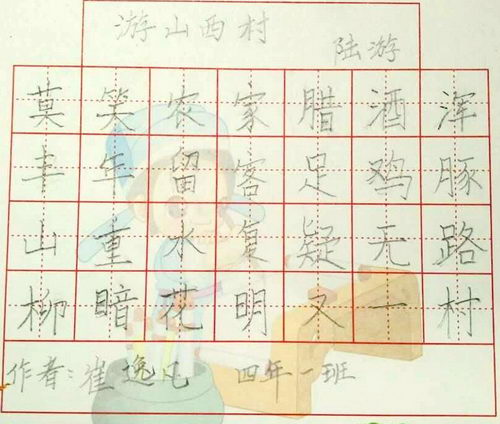 游山西村
陆游
莫笑农家腊酒浑
丰年留客足鸡豚
山重水复疑无路
柳暗花明又一村
作者:崔逸凡 四年一班